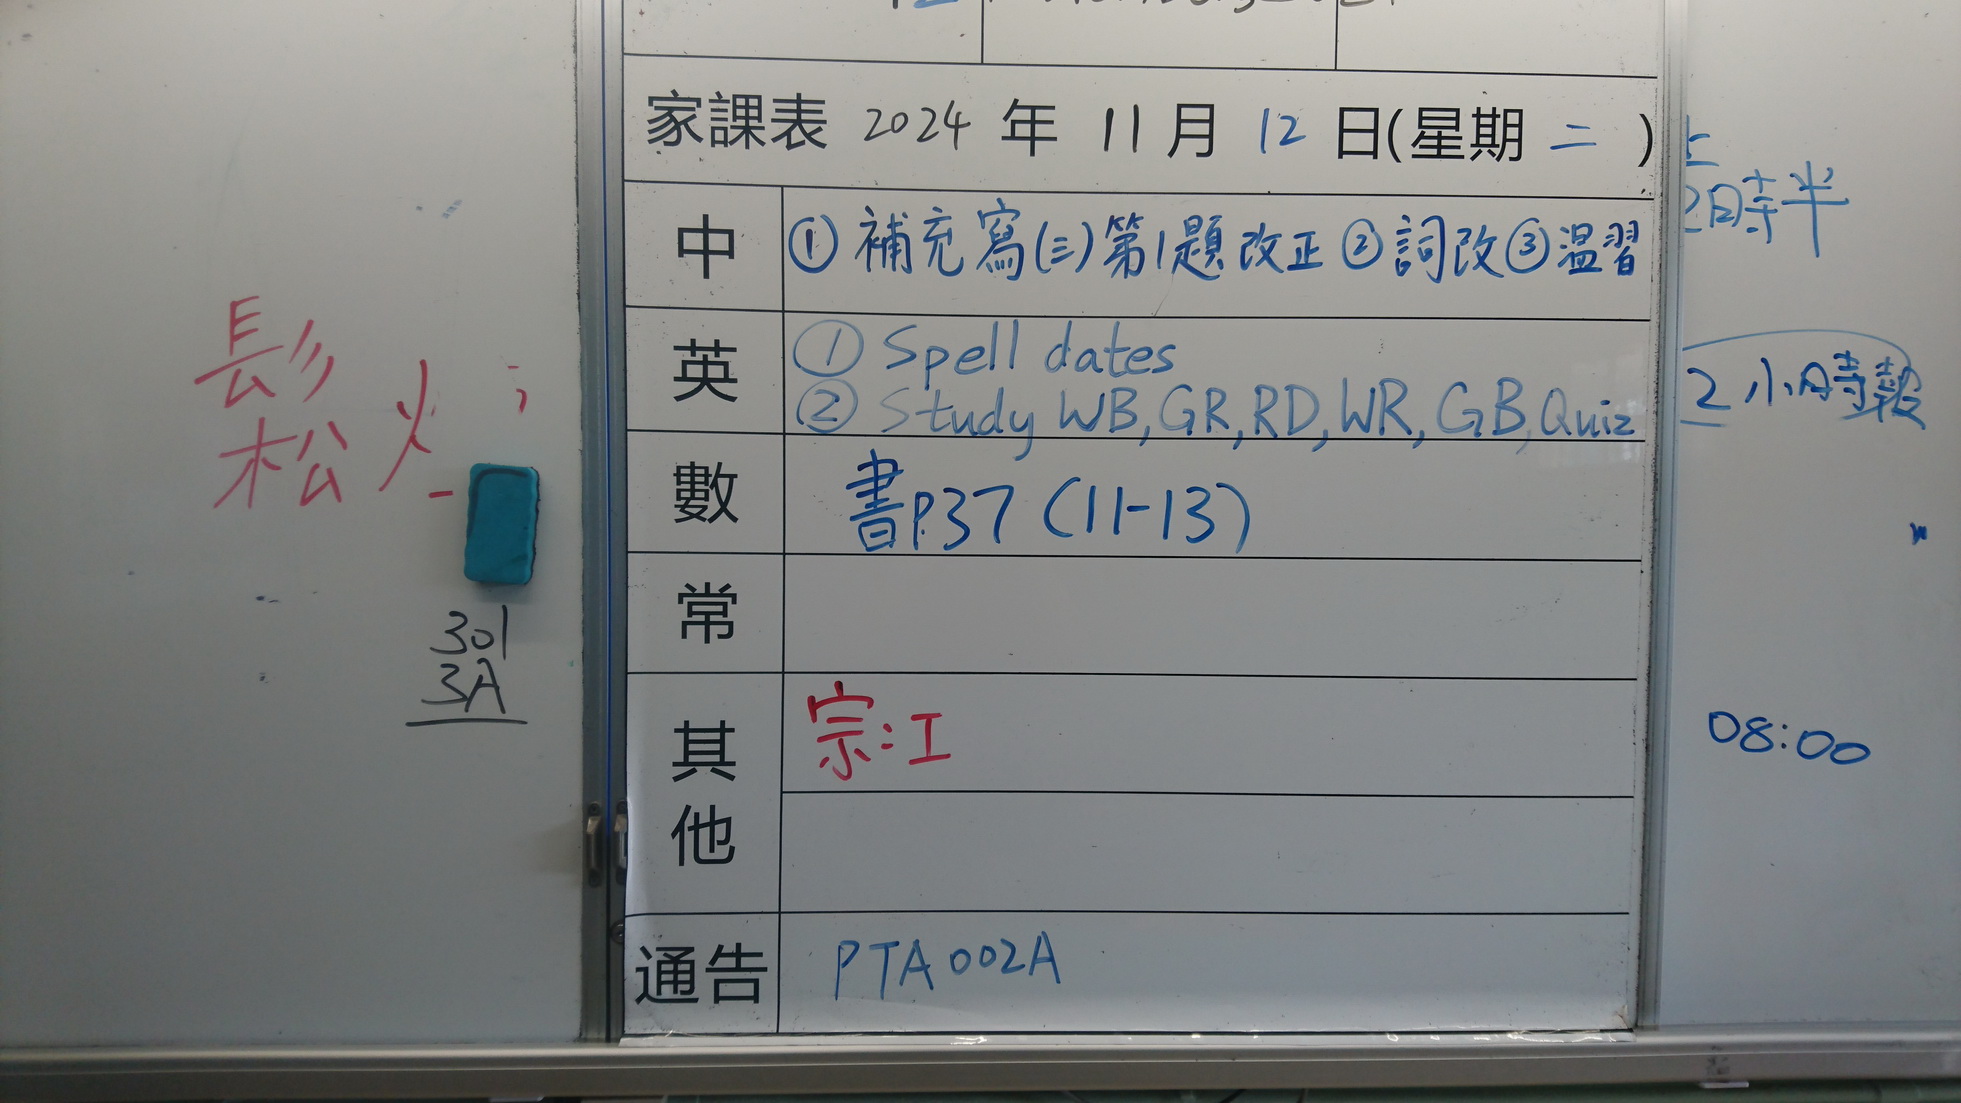 家課表 2024 年 11 月 12 日(星期 二 )
中 ① 補充寫(三)第1題改正 ② 詞改 ③ 温習
英 ① Spell dates
② Study WB, GR, RD, WR, GB, Quiz
數 書P.37 (11-13)
常
其他 宗:工
通告 PTA002A
鬆
火
301
3A
2時半
2小時報
08:00